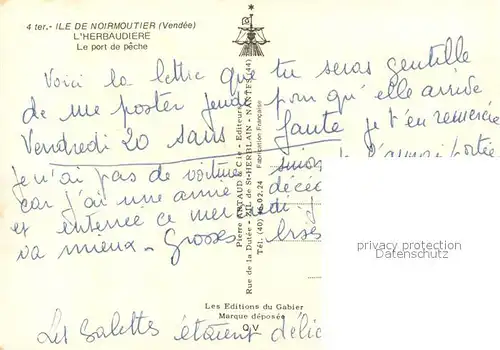 4 ter.- ILE DE NOIRMOUTIER (Vendée)
L'HERBAUDIERE
Le port de pêche
Voici la lettre que tu seras gentille
de me poster jeudi pour qu'elle arrive
Vendredi 20 sans faute je t'en remercie
sinon je l'aurai portée
je n'ai pas de voiture
car j'ai une amie décéd
et enterrée ce mercredi
va mieux - Grosses bises
Les galettes étaient délic
Pierre ARTAUD & Cie - Editeurs
Rue de la Dutée - ZIL de St-HERBLAIN - NANTES (44)
Tél. (40) 02.24 Fabrication Française
privacy protection
Datenschutz
Les Editions du Gabier
Marque déposée
O V